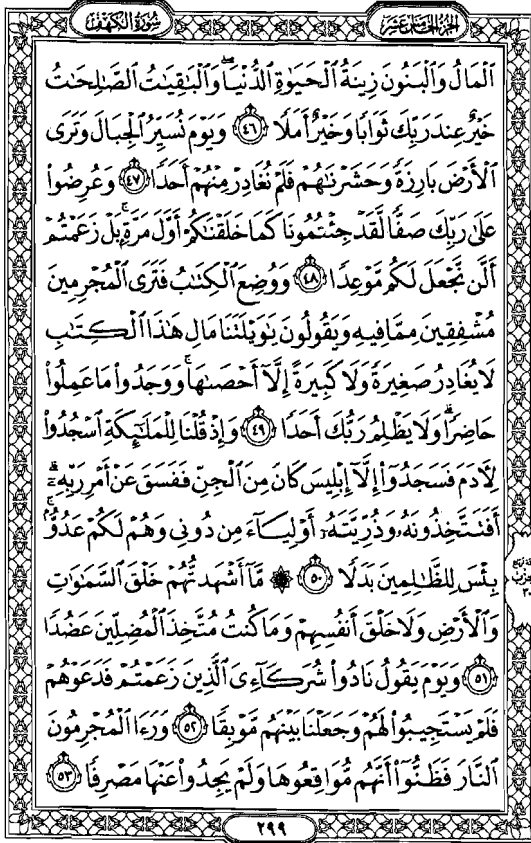 سُورَةُ الكَهْفِ
الجُزْءُ الخَامِسَ عَشَرَ
ٱلْمَالُ وَٱلْبَنُونَ زِينَةُ ٱلْحَيَوٰةِ ٱلدُّنْيَا ۖ وَٱلْبَٰقِيَٰتُ ٱلصَّٰلِحَٰتُ
خَيْرٌ عِندَ رَبِّكَ ثَوَابًا وَخَيْرٌ أَمَلًا ٤٦ وَيَوْمَ نُسَيِّرُ ٱلْجِبَالَ وَتَرَى
ٱلْأَرْضَ بَارِزَةً وَحَشَرْنَٰهُمْ فَلَمْ نُغَادِرْ مِنْهُمْ أَحَدًا ٤٧ وَعُرِضُوا۟
عَلَىٰ رَبِّكَ صَفًّا لَّقَدْ جِئْتُمُونَا كَمَا خَلَقْنَٰكُمْ أَوَّلَ مَرَّةٍۭ ۚ بَلْ زَعَمْتُمْ
أَلَّن نَّجْعَلَ لَكُم مَّوْعِدًا ٤٨ وَوُضِعَ ٱلْكِتَٰبُ فَتَرَى ٱلْمُجْرِمِينَ
مُشْفِقِينَ مِمَّا فِيهِ وَيَقُولُونَ يَٰوَيْلَتَنَا مَالِ هَٰذَا ٱلْكِتَٰبِ
لَا يُغَادِرُ صَغِيرَةً وَلَا كَبِيرَةً إِلَّآ أَحْصَىٰهَا ۚ وَوَجَدُوا۟ مَا عَمِلُوا۟
حَاضِرًا ۗ وَلَا يَظْلِمُ رَبُّكَ أَحَدًا ٤٩ وَإِذْ قُلْنَا لِلْمَلَٰٓئِكَةِ ٱسْجُدُوا۟
لِـَٔادَمَ فَسَجَدُوٓا۟ إِلَّآ إِبْلِيسَ كَانَ مِنَ ٱلْجِنِّ فَفَسَقَ عَنْ أَمْرِ رَبِّهِۦٓ ۗ
أَفَتَتَّخِذُونَهُۥ وَذُرِّيَّتَهُۥٓ أَوْلِيَآءَ مِن دُونِى وَهُمْ لَكُمْ عَدُوٌّۢ ۚ
بِئْسَ لِلظَّٰلِمِينَ بَدَلًا ٥٠ ۞ مَّآ أَشْهَدتُّهُمْ خَلْقَ ٱلسَّمَٰوَٰتِ
وَٱلْأَرْضِ وَلَا خَلْقَ أَنفُسِهِمْ وَمَا كُنتُ مُتَّخِذَ ٱلْمُضِلِّينَ عَضُدًا
٥١ وَيَوْمَ يَقُولُ نَادُوا۟ شُرَكَآءِىَ ٱلَّذِينَ زَعَمْتُمْ فَدَعَوْهُمْ
فَلَمْ يَسْتَجِيبُوا۟ لَهُمْ وَجَعَلْنَا بَيْنَهُم مَّوْبِقًا ٥٢ وَرَءَا ٱلْمُجْرِمُونَ
ٱلنَّارَ فَظَنُّوٓا۟ أَنَّهُم مُّوَاقِعُوهَا وَلَمْ يَجِدُوا۟ عَنْهَا مَصْرِفًا ٥٣
٢٩٩